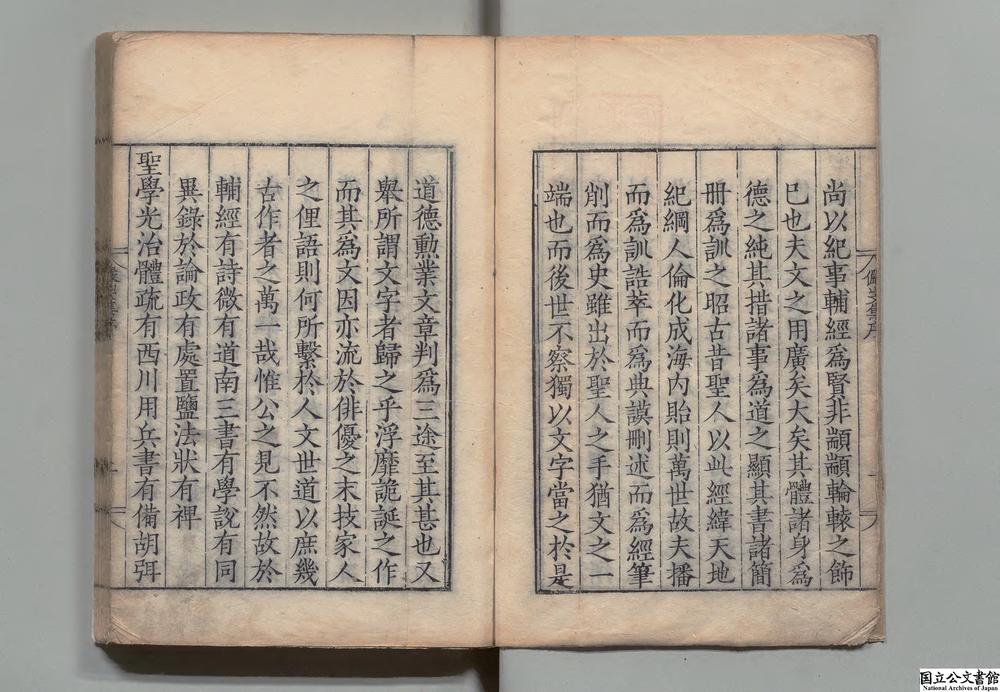 尚以紀事輔經爲賢非顓顓輪轅之飾
已也夫文之用廣矣大矣其體諸身爲
德之純其措諸事爲道之顯其書諸簡
冊爲訓之昭古昔聖人以此經緯天地
紀綱人倫化成海内貽則萬世故夫播
而爲訓誥萃而爲典謨刪述而爲經筆
削而爲史雖出於聖人之手猶文之一
端也而後世不察獨以文字當之於是
道德勳業文章判爲三途至其甚也又
舉所謂文字者歸之乎浮靡詭誕之作
而其爲文因亦流於俳優之末技家人
之俚語則何所繫於人文世道以庶幾
古作者之萬一哉惟公之見不然故於
輔經有詩微有道南三書有學說有同
異錄於論政有處置鹽法狀有禆
聖學光治體疏有西川用兵書有備胡弭
国立公文書館
National Archives of Japan